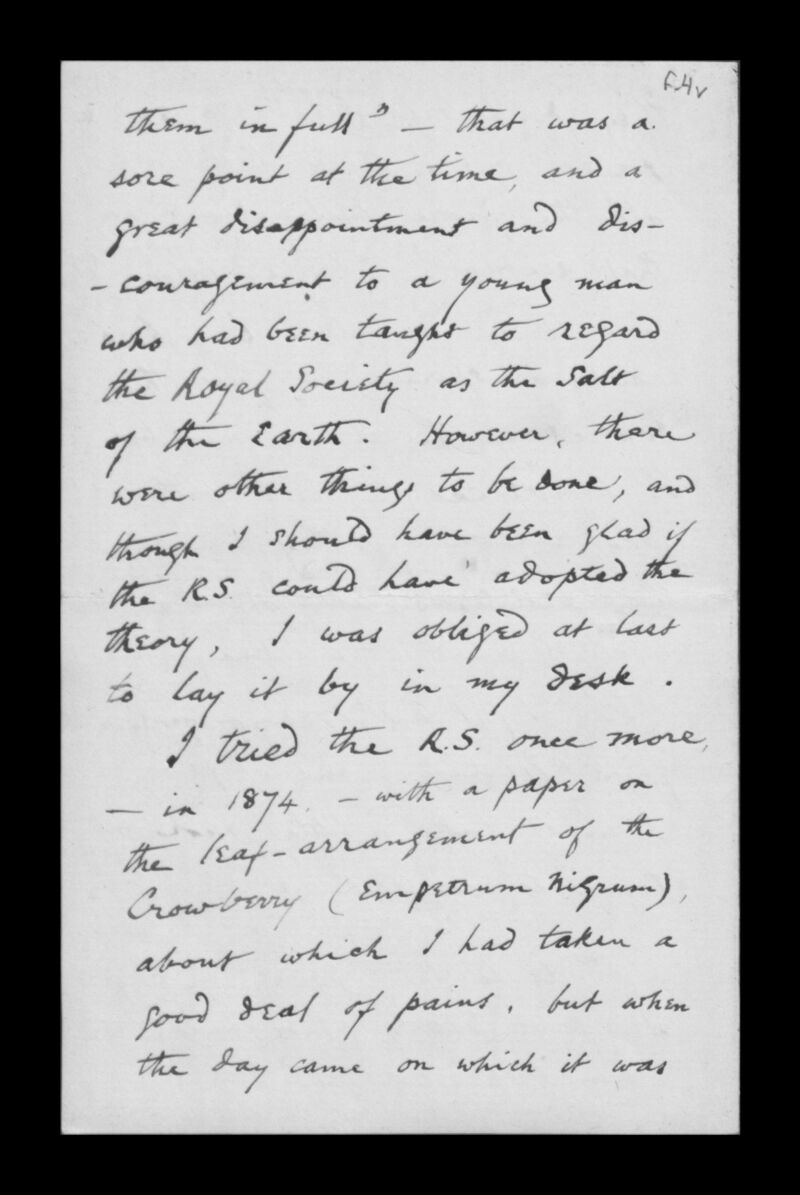 f.4v
them in full" — that was a
sore point at the time, and a
great disappointment and dis-
-couragement to a young man
who had been taught to regard
the Royal Society as the Salt
of the Earth. However, there
were other things to be done, and
though I should have been glad if
the R.S. could have adopted the
theory, I was obliged at last
to lay it by in my desk.
I tried the R.S. once more,
— in 1874. — with a paper on
the leaf-arrangement of the
Crowberry (Empetrum Nigrum),
about which I had taken a
good deal of pains, but when
the day came on which it was